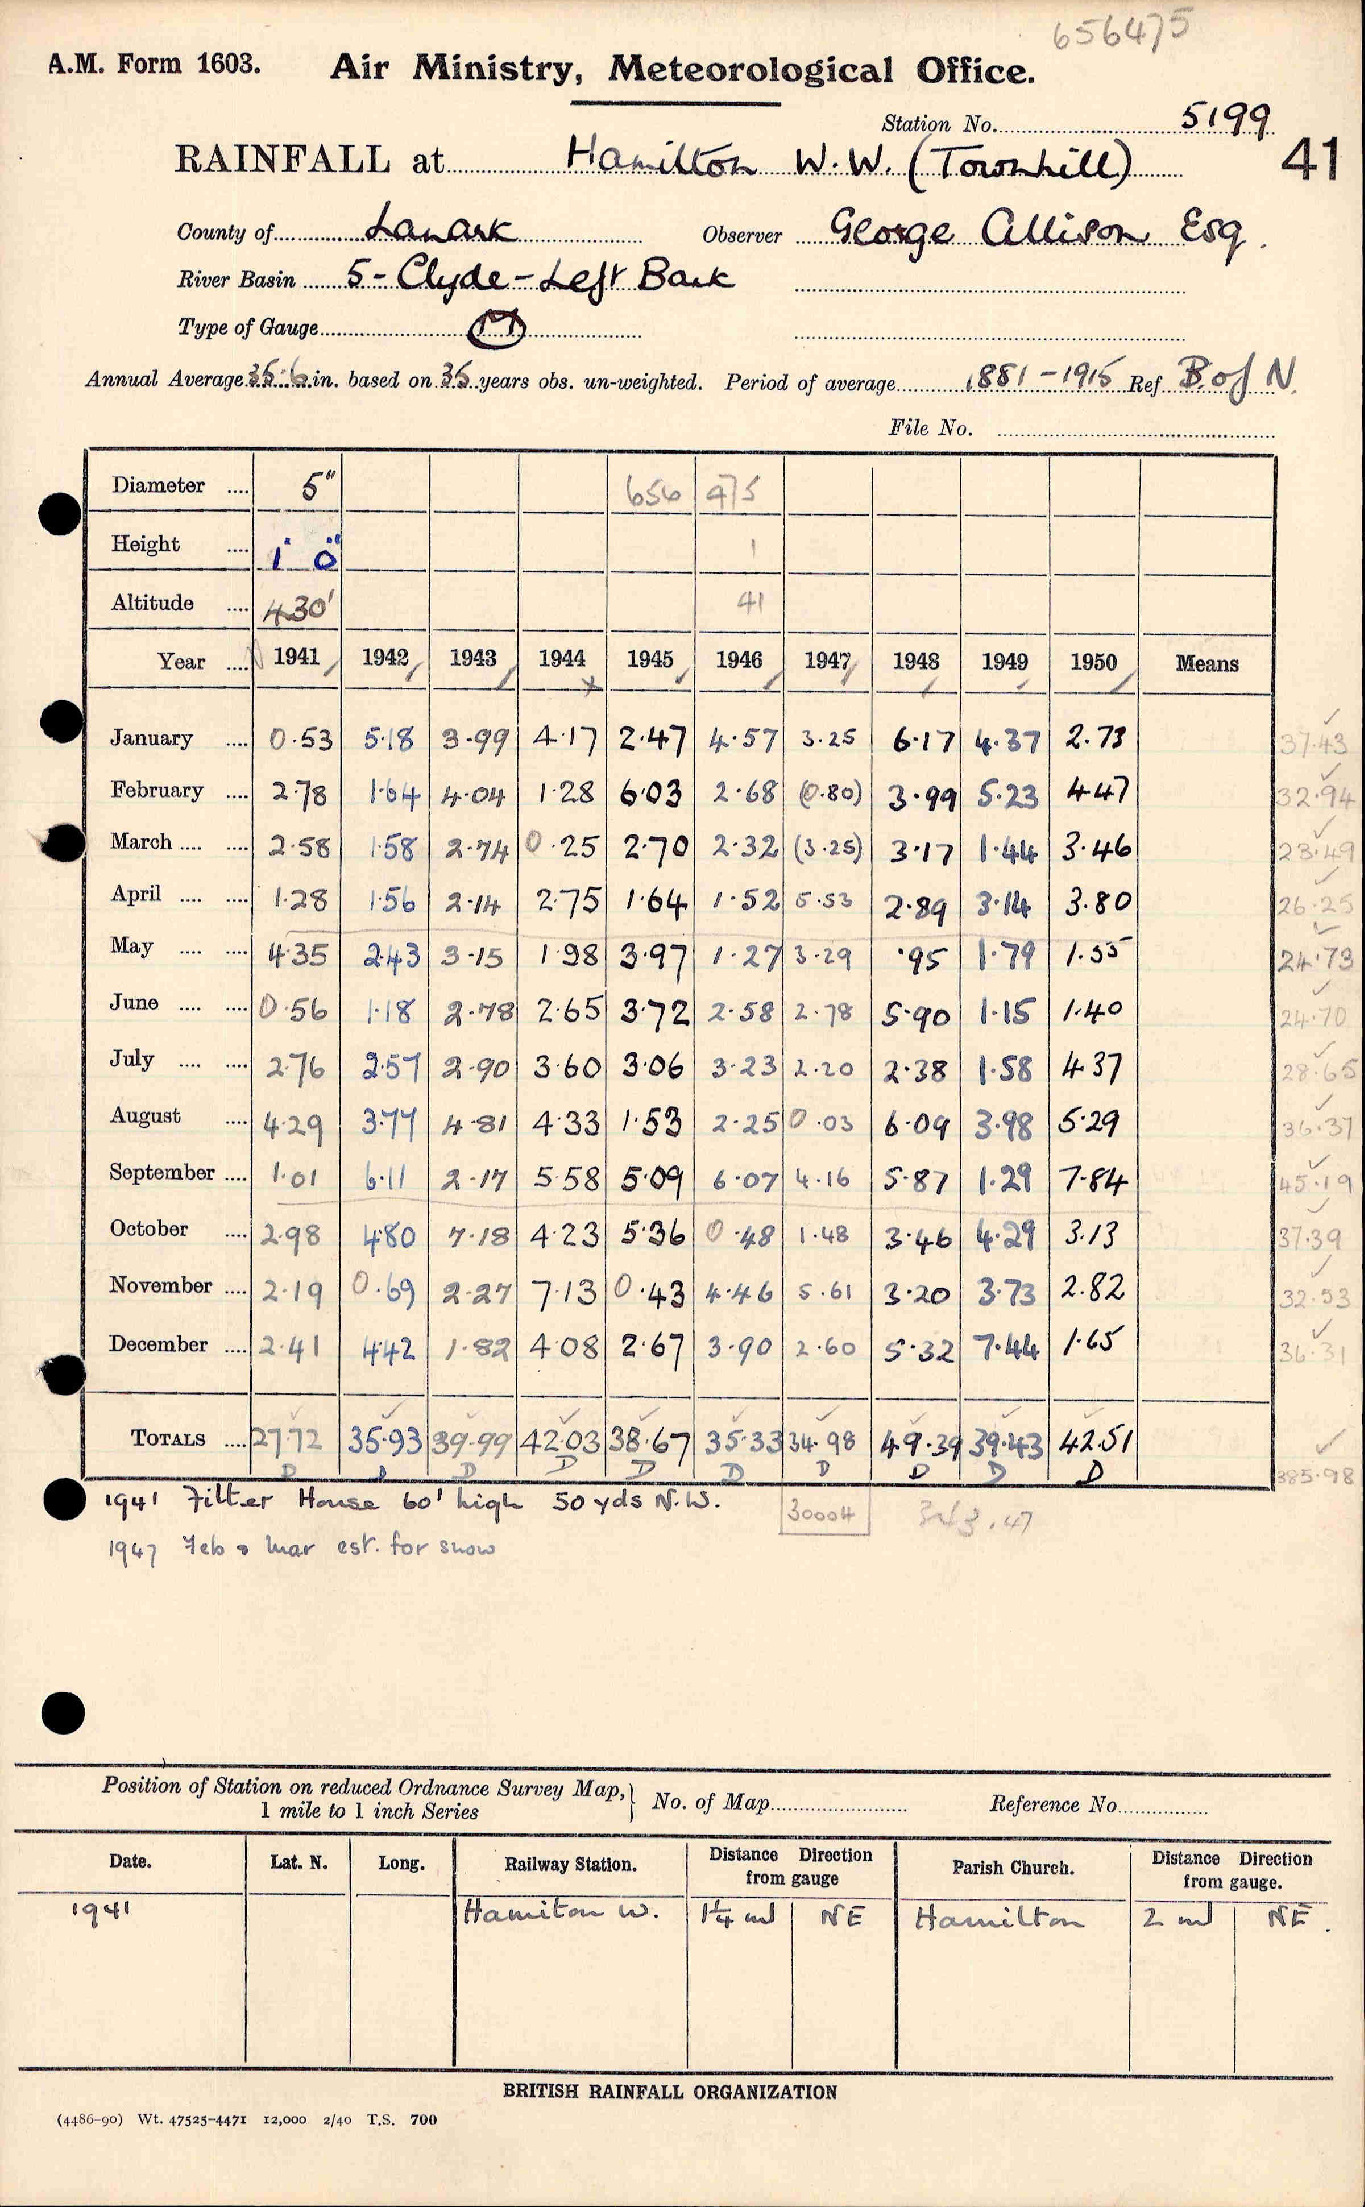 656475
A.M. Form 1603. Air Ministry, Meteorological Office.
Station No. 5199
RAINFALL at Hamilton W.W. (Townhill) 41
County of Lanark Observer George Allison Esq.
River Basin 5 - Clyde - Left Bank
Type of Gauge M
Annual Average 35.6 in. based on 35 years obs. un-weighted. Period of average 1881-1915 Ref B. of N.
File No.
Diameter .... 5" 656 475
Height .... 1' 0" 1
Altitude .... 430' 41
Year .... 1941 1942 1943 1944 1945 1946 1947 1948 1949 1950 Means
January .... 0.53 5.18 3.99 4.17 2.47 4.57 3.25 6.17 4.37 2.73 37.43
February .... 2.78 1.64 4.04 1.28 6.03 2.68 (0.80) 3.99 5.23 4.47 32.94
March .... .... 2.58 1.58 2.74 0.25 2.70 2.32 (3.25) 3.17 1.44 3.46 23.49
April .... .... 1.28 1.56 2.14 2.75 1.64 1.52 5.53 2.89 3.14 3.80 26.25
May .... .... 4.35 2.43 3.15 1.98 3.97 1.27 3.29 .95 1.79 1.55 24.73
June .... .... 0.56 1.18 2.78 2.65 3.72 2.58 2.78 5.90 1.15 1.40 24.70
July .... .... 2.76 2.57 2.90 3.60 3.06 3.23 2.20 2.38 1.58 4.37 28.65
August .... 4.29 3.77 4.81 4.33 1.53 2.25 0.03 6.09 3.98 5.29 36.37
September .... 1.01 6.11 2.17 5.58 5.09 6.07 4.16 5.87 1.29 7.84 45.19
October .... 2.98 4.80 7.18 4.23 5.36 0.48 1.48 3.46 4.29 3.13 37.39
November .... 2.19 0.69 2.27 7.13 0.43 4.46 5.61 3.20 3.73 2.82 32.53
December .... 2.41 4.42 1.82 4.08 2.67 3.90 2.60 5.32 7.44 1.65 36.31
TOTALS .... 27.72 35.93 39.99 42.03 38.67 35.33 34.98 49.39 39.43 42.51
D D D D D D D D D D 385.98
1941 Filter House 60' high 50 yds N.W. 30004 343.47
1947 Feb & Mar est. for snow
Position of Station on reduced Ordnance Survey Map,
1 mile to 1 inch Series
No. of Map Reference No.
Date. Lat. N. Long. Railway Station. Distance Direction from gauge Parish Church. Distance Direction from gauge.
1941 Hamilton W. 1¼ ml NE Hamilton 2 ml NE.
BRITISH RAINFALL ORGANIZATION
(4486-90) Wt. 47525-4471 12,000 2/40 T.S. 700